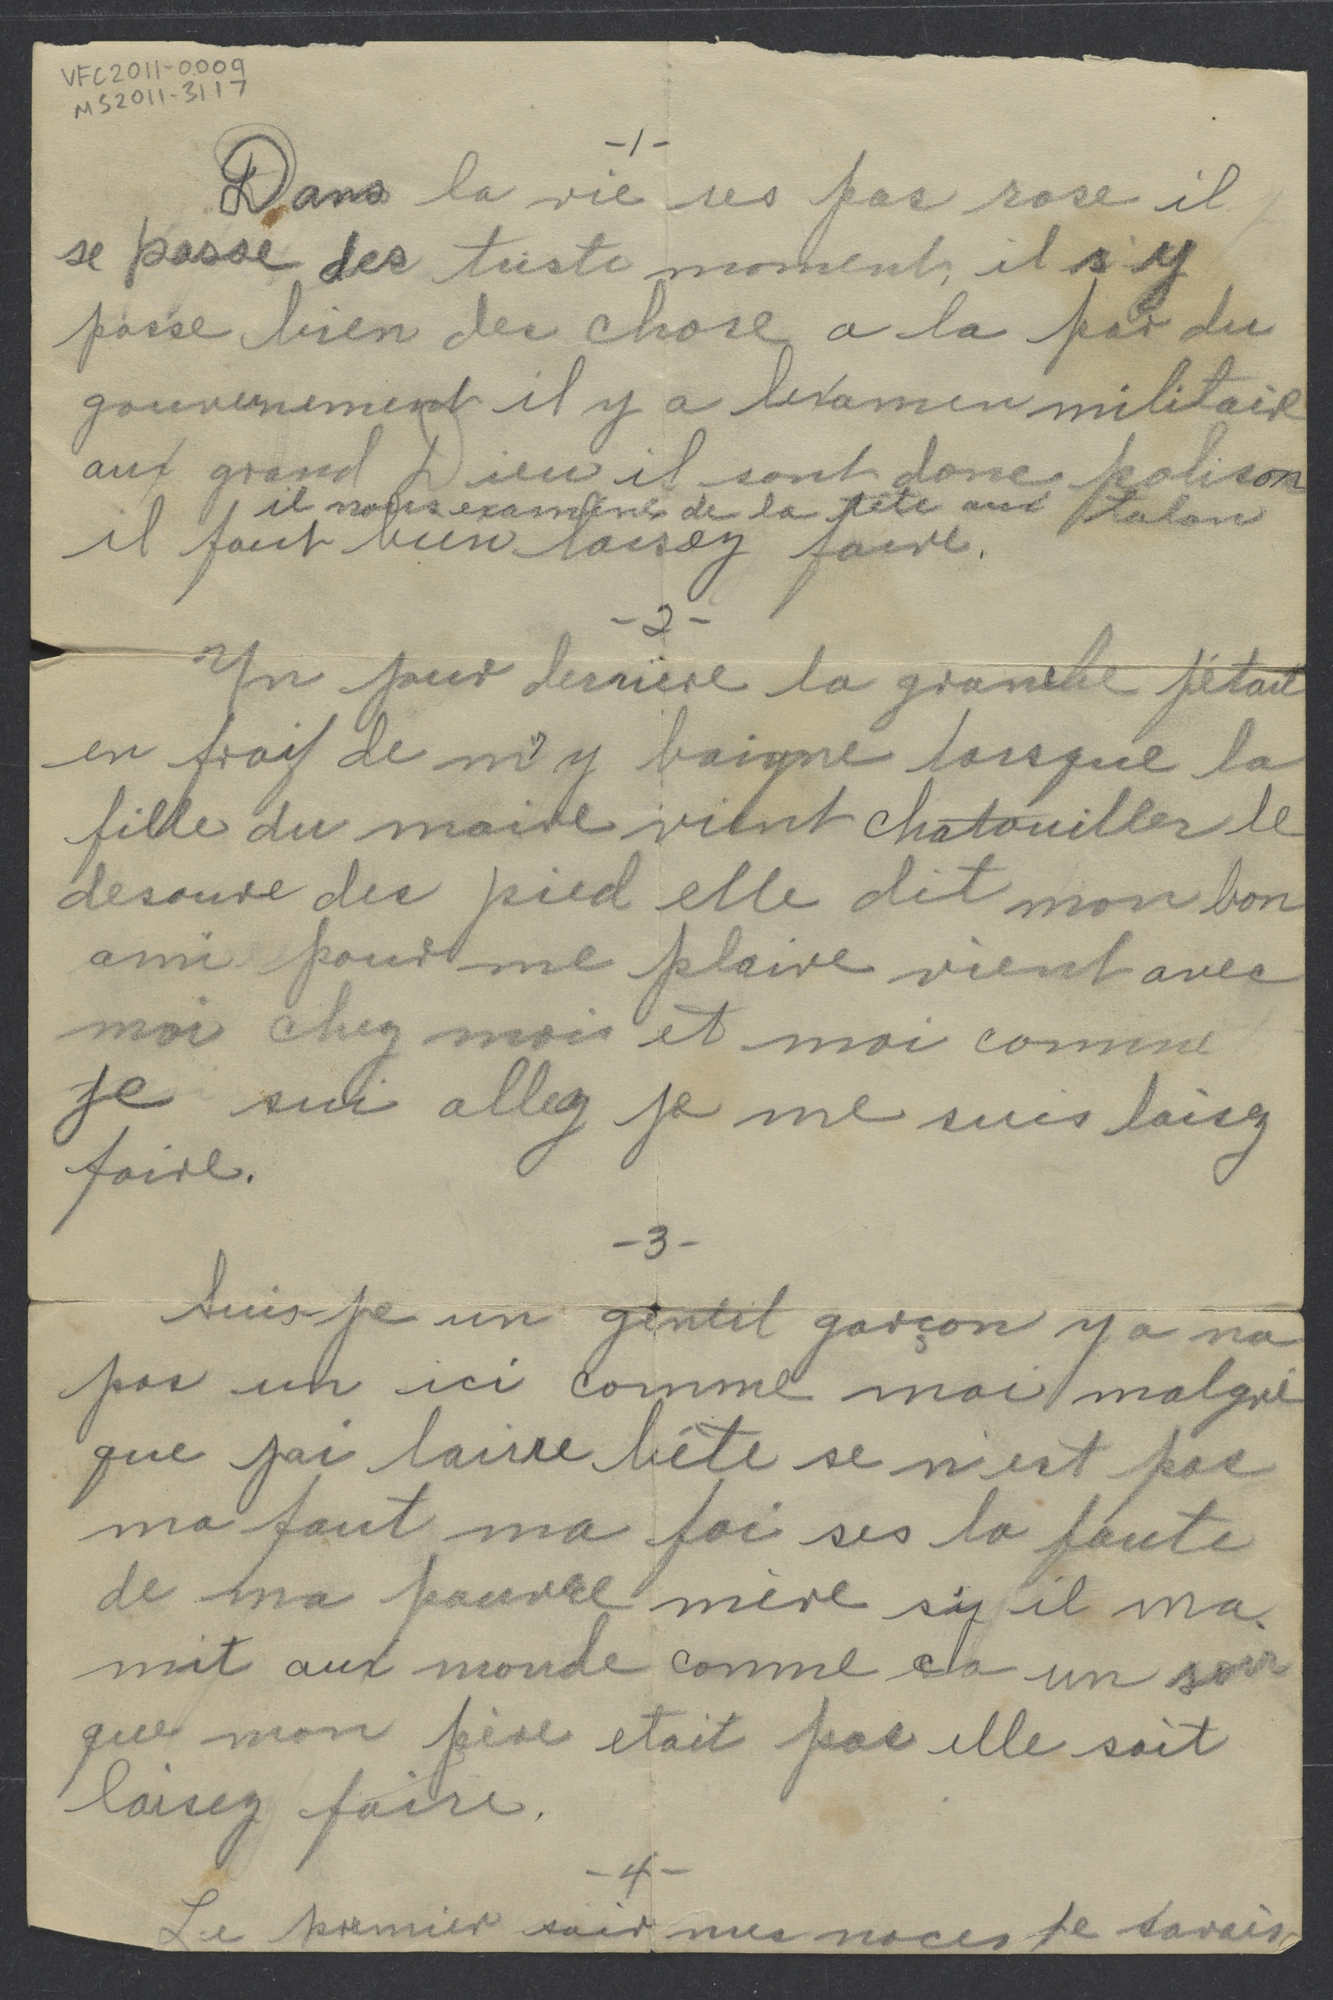 VFC2011-0009
MS2011-3117
-1-
Dans la vie ses pas rose il
se passe des triste moment, il s'y
passe bien des chose a la par du
gouvernement il y a lexamen militaire
aux grand Dieu il sont donc polison
il nous examine de la tête aux talon
il faut bien laisez faire.
-2-
Un jour derrière la granche j'était
en frais de m'y baigne lorsque la
fille du maire vient chatouiller le
desoure des pied elle dit mon bon
ami pour me plaire vient avec
moi chez mois et moi comme
je sui allez je me suis laisez
faire.
-3-
Suis-je un gentil garçon y a na
pas un ici comme moi malgré
que jai laire bête se n'est pas
ma faut ma foi ses la faute
de ma pauvre mère sy il ma
mit aux monde comme ca un soir
que mon père etait pas elle sait
laisez faire.
-4-
Le premier soir mes noces je savais